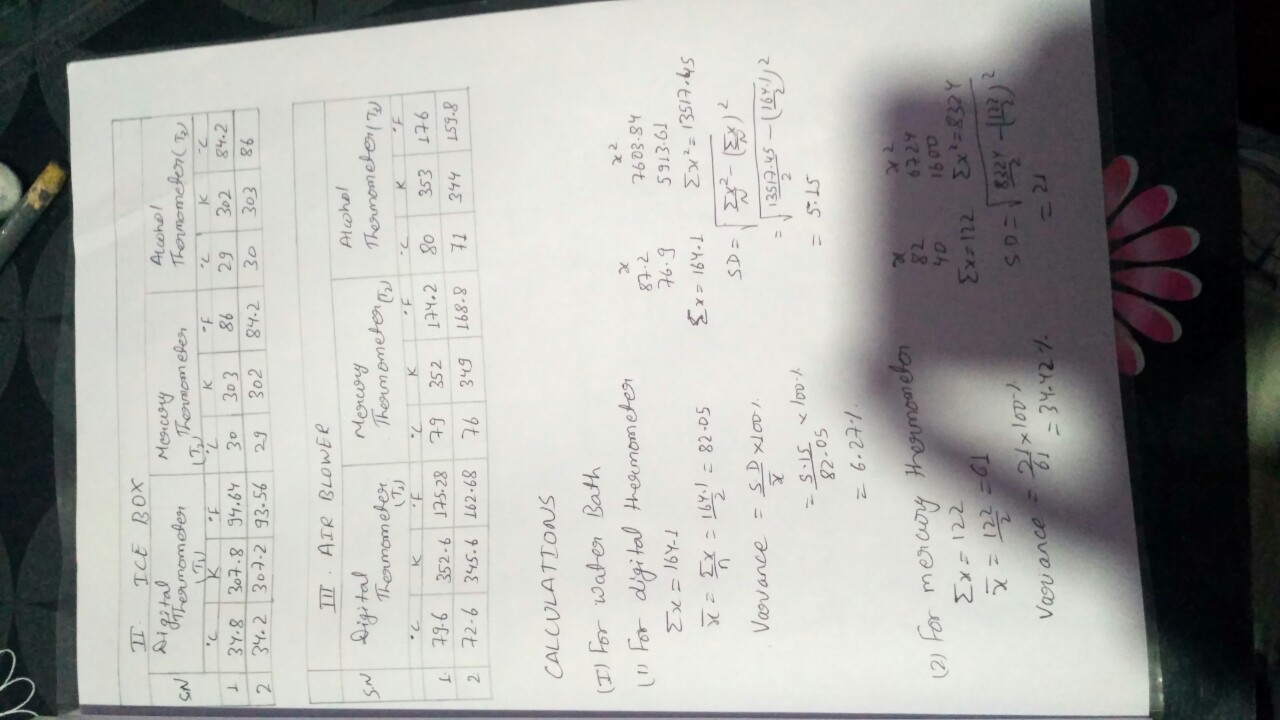 II. ICE BOX
SN Digital Thermometer (T1) Mercury Thermometer (T2) Alcohol Thermometer (T3)
°C K °F °C K °F °C K °C
1 34.8 307.8 94.64 30 303 86 29 302 84.2
2 34.2 307.2 93.56 29 302 84.2 30 303 86
III. AIR BLOWER
SN Digital Thermometer (T1) Mercury Thermometer (T2) Alcohol Thermometer (T3)
°C K °F °C K °F °C K °F
1 79.6 352.6 175.28 79 352 174.2 80 353 176
2 72.6 345.6 162.68 76 349 168.8 71 344 159.8
CALCULATIONS
(I) For Water Bath
(1) For digital thermometer
Σx = 164.1
x̄ = Σx/n = 164.1/2 = 82.05
Variance = S.D/x̄ × 100%
= 5.15/82.05 × 100%
= 6.27%
x x²
87.2 7603.84
76.9 5913.61
Σx = 164.1 Σx² = 13517.45
S.D = √(Σx²/N - (Σx/N)²)
= √(13517.45/2 - (164.1/2)²)
= 5.15
(2) For mercury thermometer
Σx = 122
x̄ = 122/2 = 61
Variance = 21/61 × 100%
= 34.42%
x x²
82 6724
40 1600
Σx = 122 Σx² = 8324
S.D = √(8324/2 - (122/2)²)
= 21